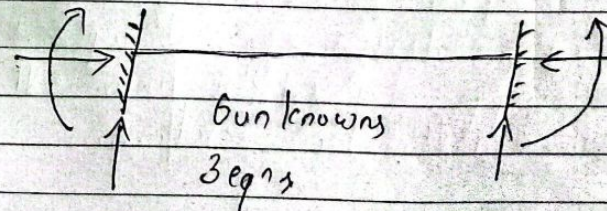 6 unknowns
3 eqns